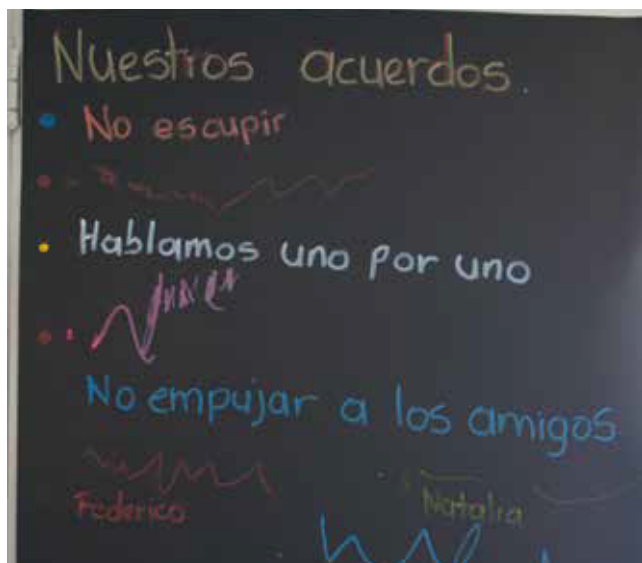 Nuestros acuerdos.
• No escupir
• Hablamos uno por uno
No empujar a los amigos
Federico
Natalia